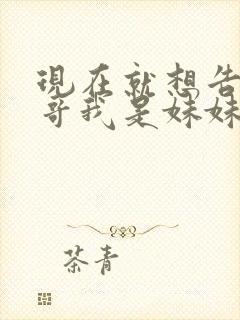 現在就想告
哥我是妹妹
茶青